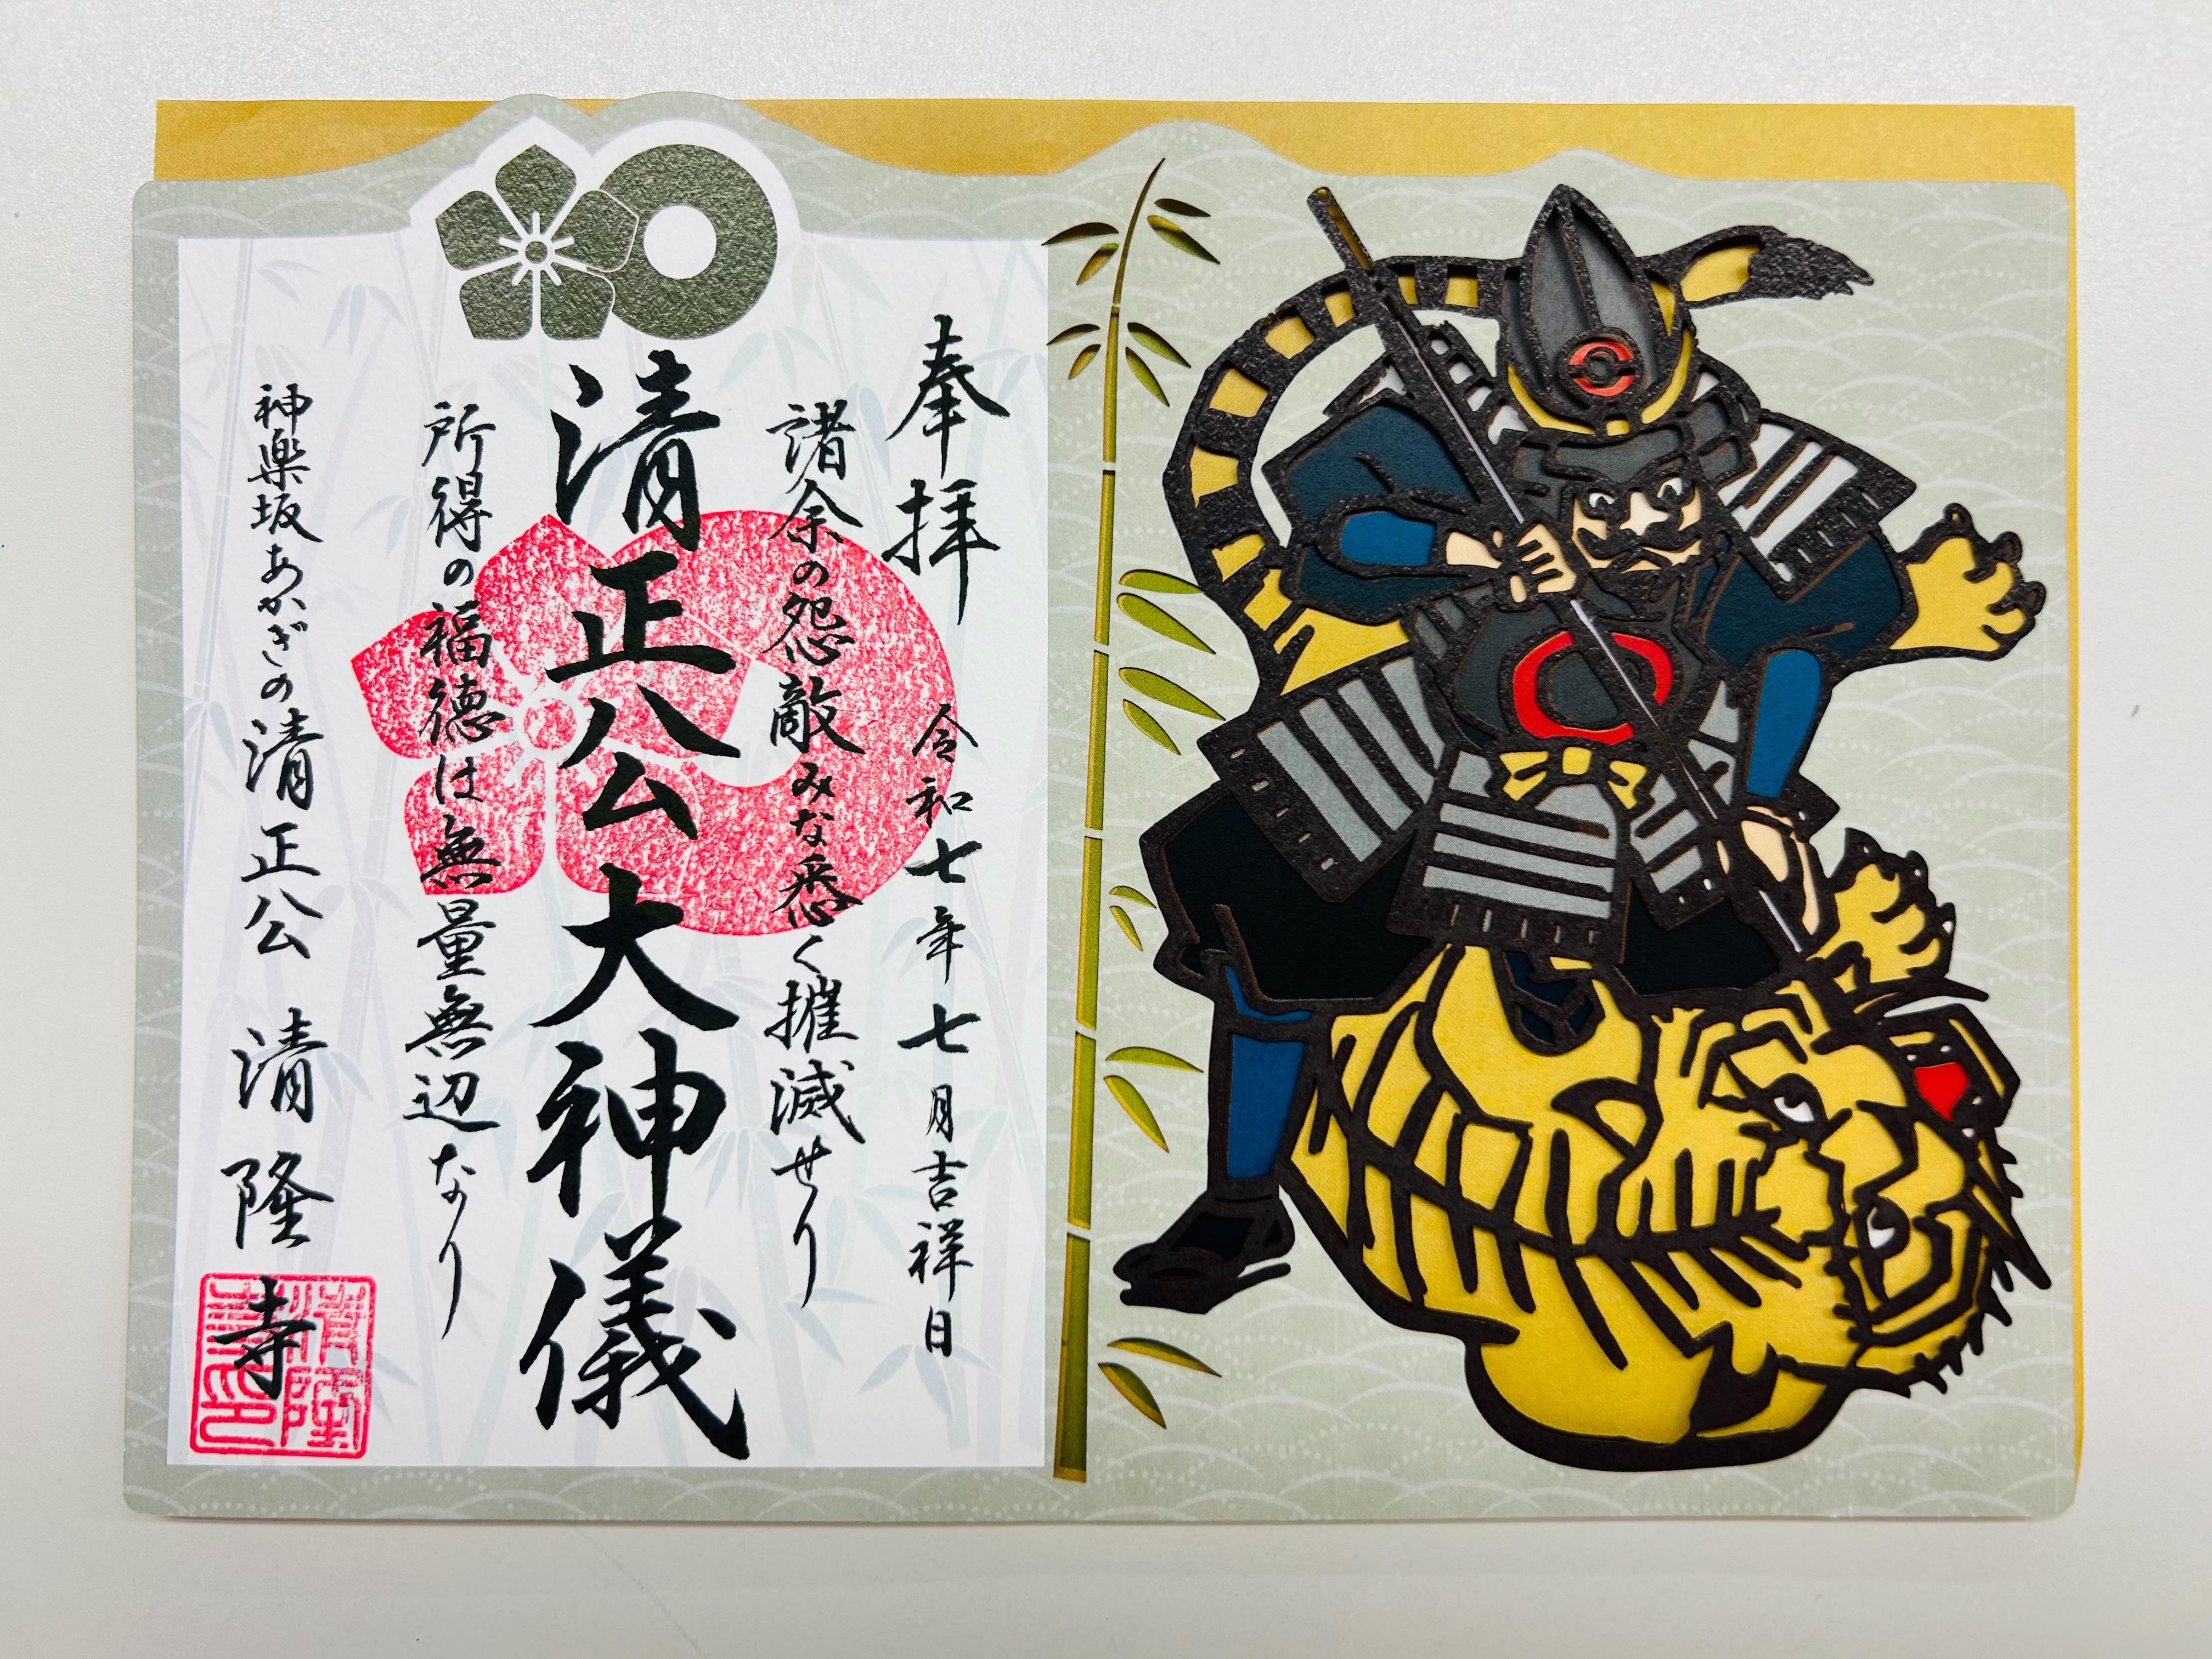 奉拝
令和七年七月吉祥日
諸余の怨敵みな悉く摧滅せり
清正公大神儀
所得の福徳は無量無辺なり
神楽坂あかぎの清正公 清隆寺
清隆寺印